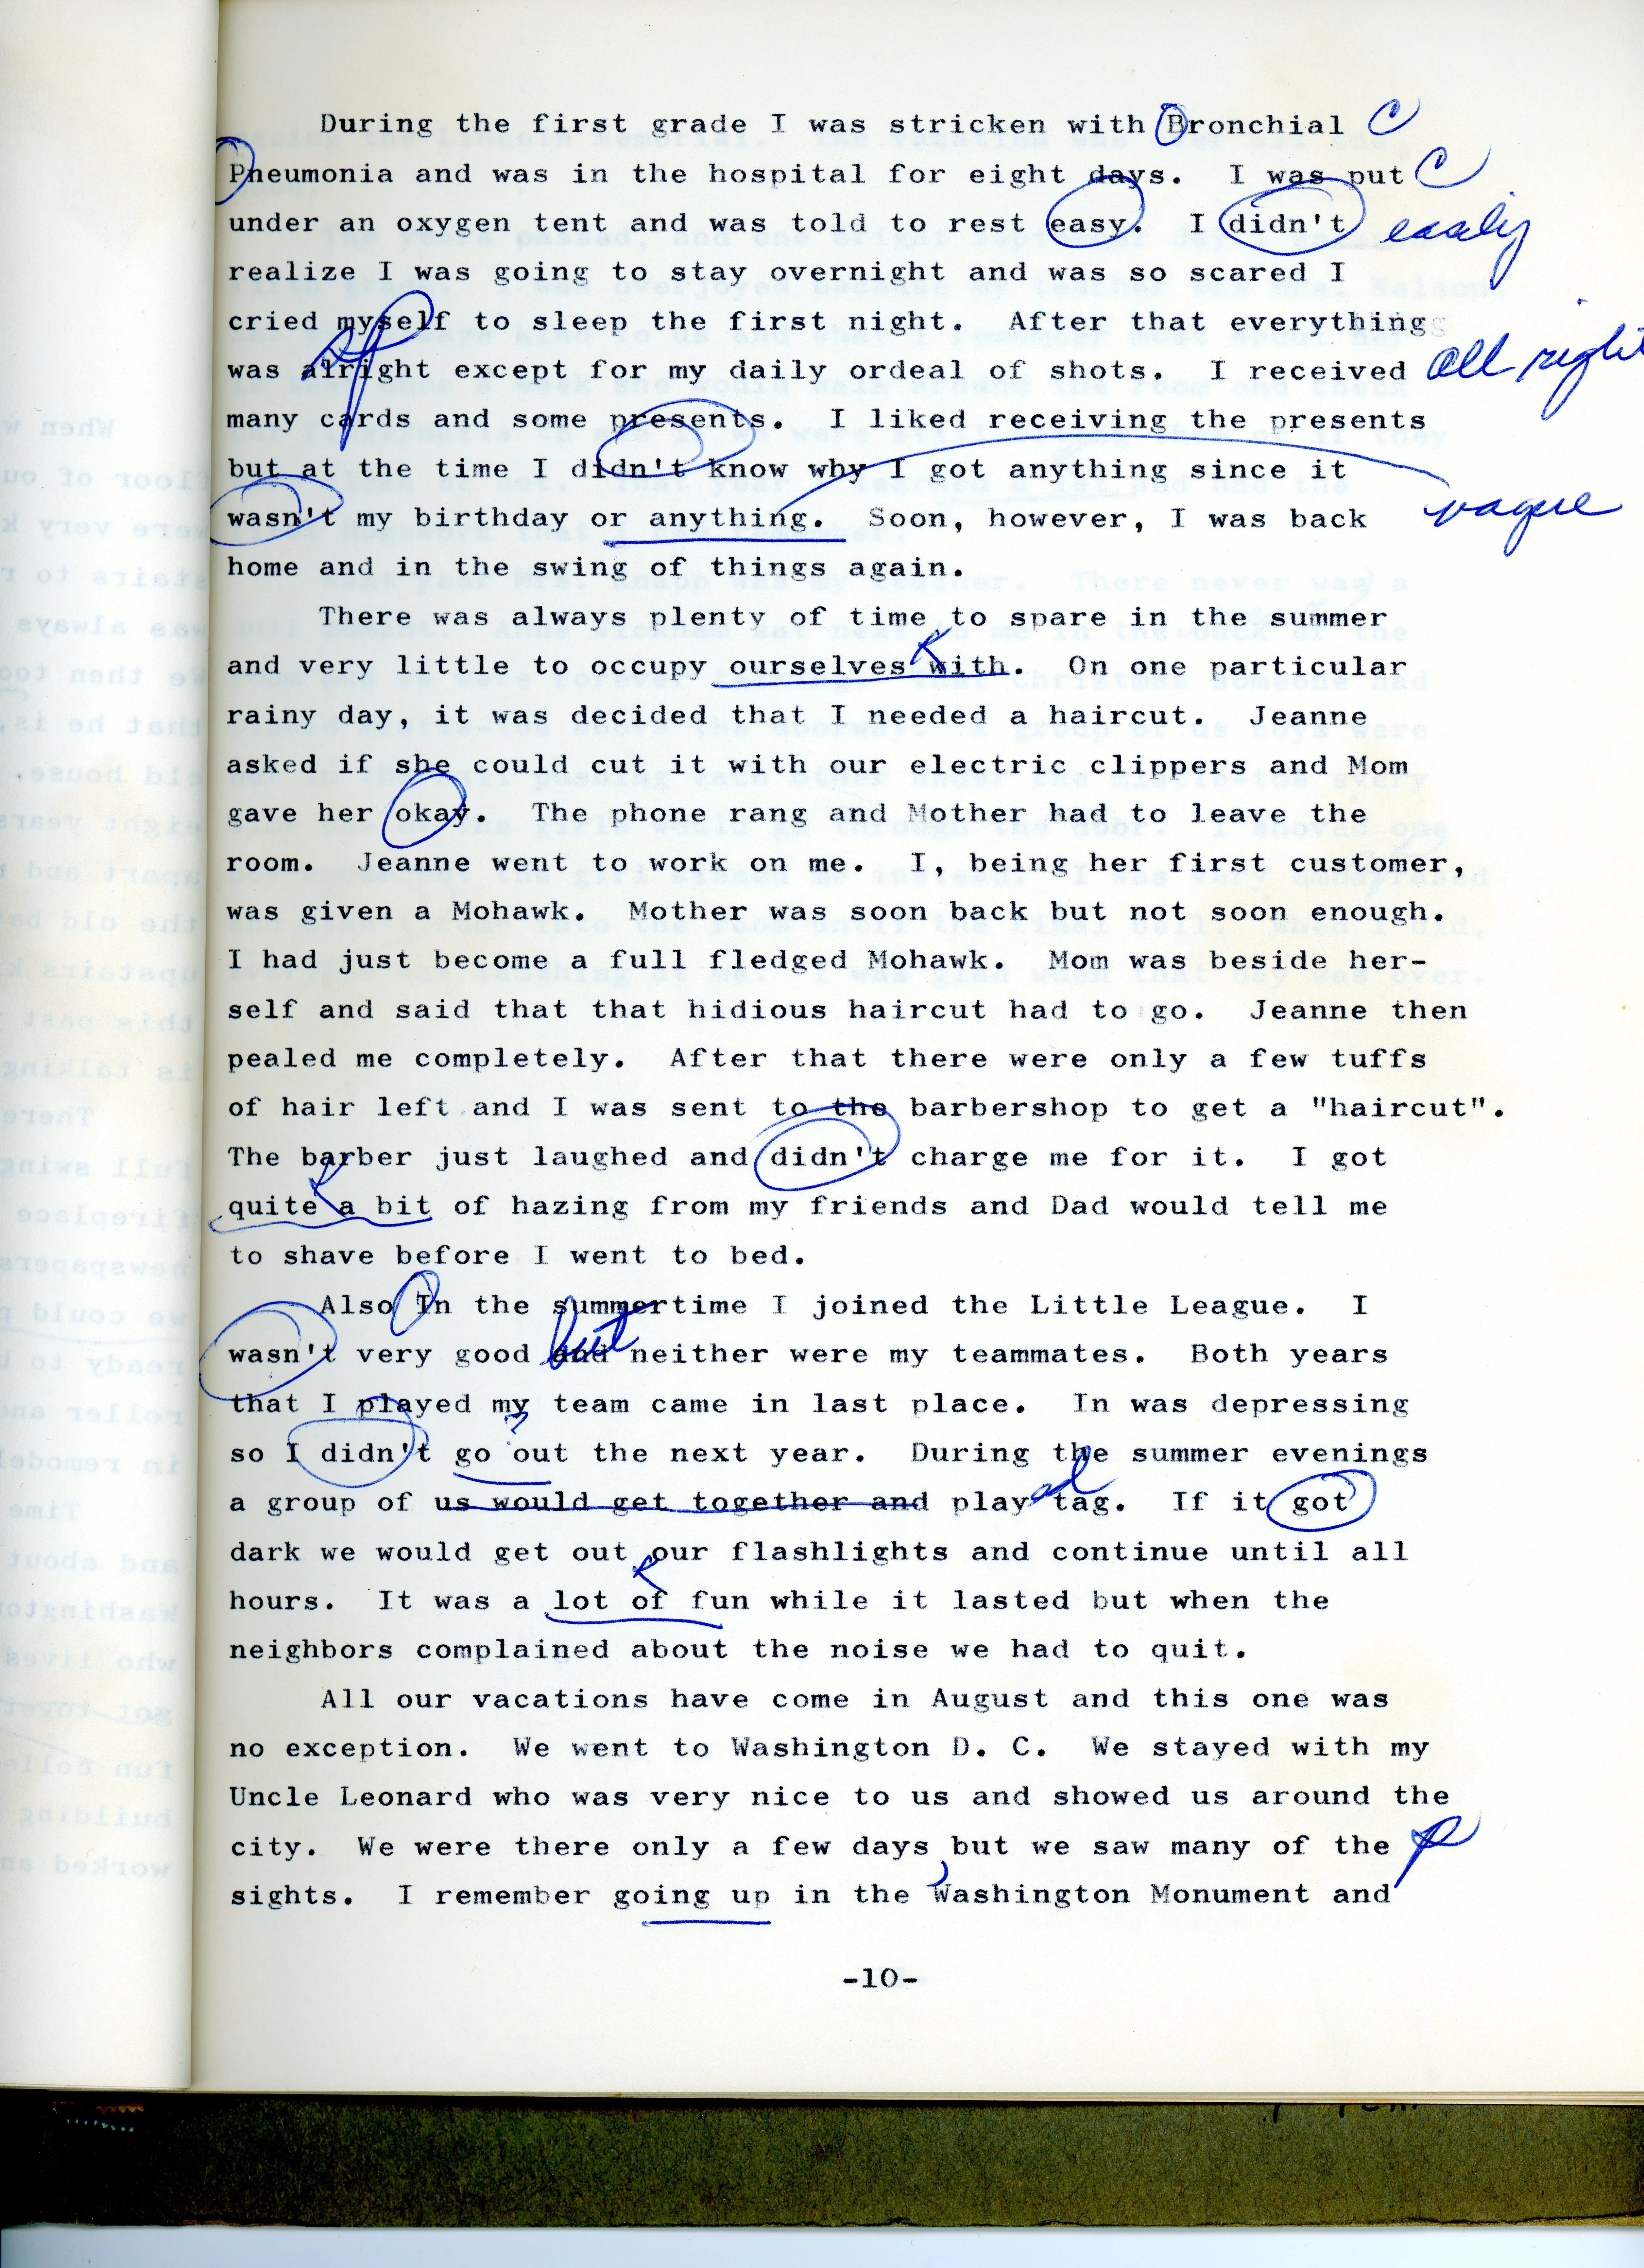 During the first grade I was stricken with Bronchial C
Pneumonia and was in the hospital for eight days. I was put C
under an oxygen tent and was told to rest easy. I didn't easily
realize I was going to stay overnight and was so scared I
cried myself to sleep the first night. After that everything
sp
was alright except for my daily ordeal of shots. I received all right
many cards and some presents. I liked receiving the presents
but at the time I didn't know why I got anything since it
wasn't my birthday or anything. Soon, however, I was back vague
home and in the swing of things again.
There was always plenty of time to spare in the summer
K
and very little to occupy ourselves with. On one particular
rainy day, it was decided that I needed a haircut. Jeanne
asked if she could cut it with our electric clippers and Mom
gave her okay. The phone rang and Mother had to leave the
room. Jeanne went to work on me. I, being her first customer,
was given a Mohawk. Mother was soon back but not soon enough.
I had just become a full fledged Mohawk. Mom was beside her-
self and said that that hidious haircut had to go. Jeanne then
pealed me completely. After that there were only a few tuffs
of hair left and I was sent to the barbershop to get a "haircut".
The barber just laughed and didn't charge me for it. I got
K
quite a bit of hazing from my friends and Dad would tell me
to shave before I went to bed.
Also In the summertime I joined the Little League. I
but
wasn't very good and neither were my teammates. Both years
that I played my team came in last place. In was depressing
?
so I didn't go out the next year. During the summer evenings
ed
a group of us would get together and play tag. If it got
dark we would get out our flashlights and continue until all
K
hours. It was a lot of fun while it lasted but when the
neighbors complained about the noise we had to quit.
All our vacations have come in August and this one was
no exception. We went to Washington D. C. We stayed with my
Uncle Leonard who was very nice to us and showed us around the
city. We were there only a few days, but we saw many of the p
sights. I remember going up in the Washington Monument and
-10-